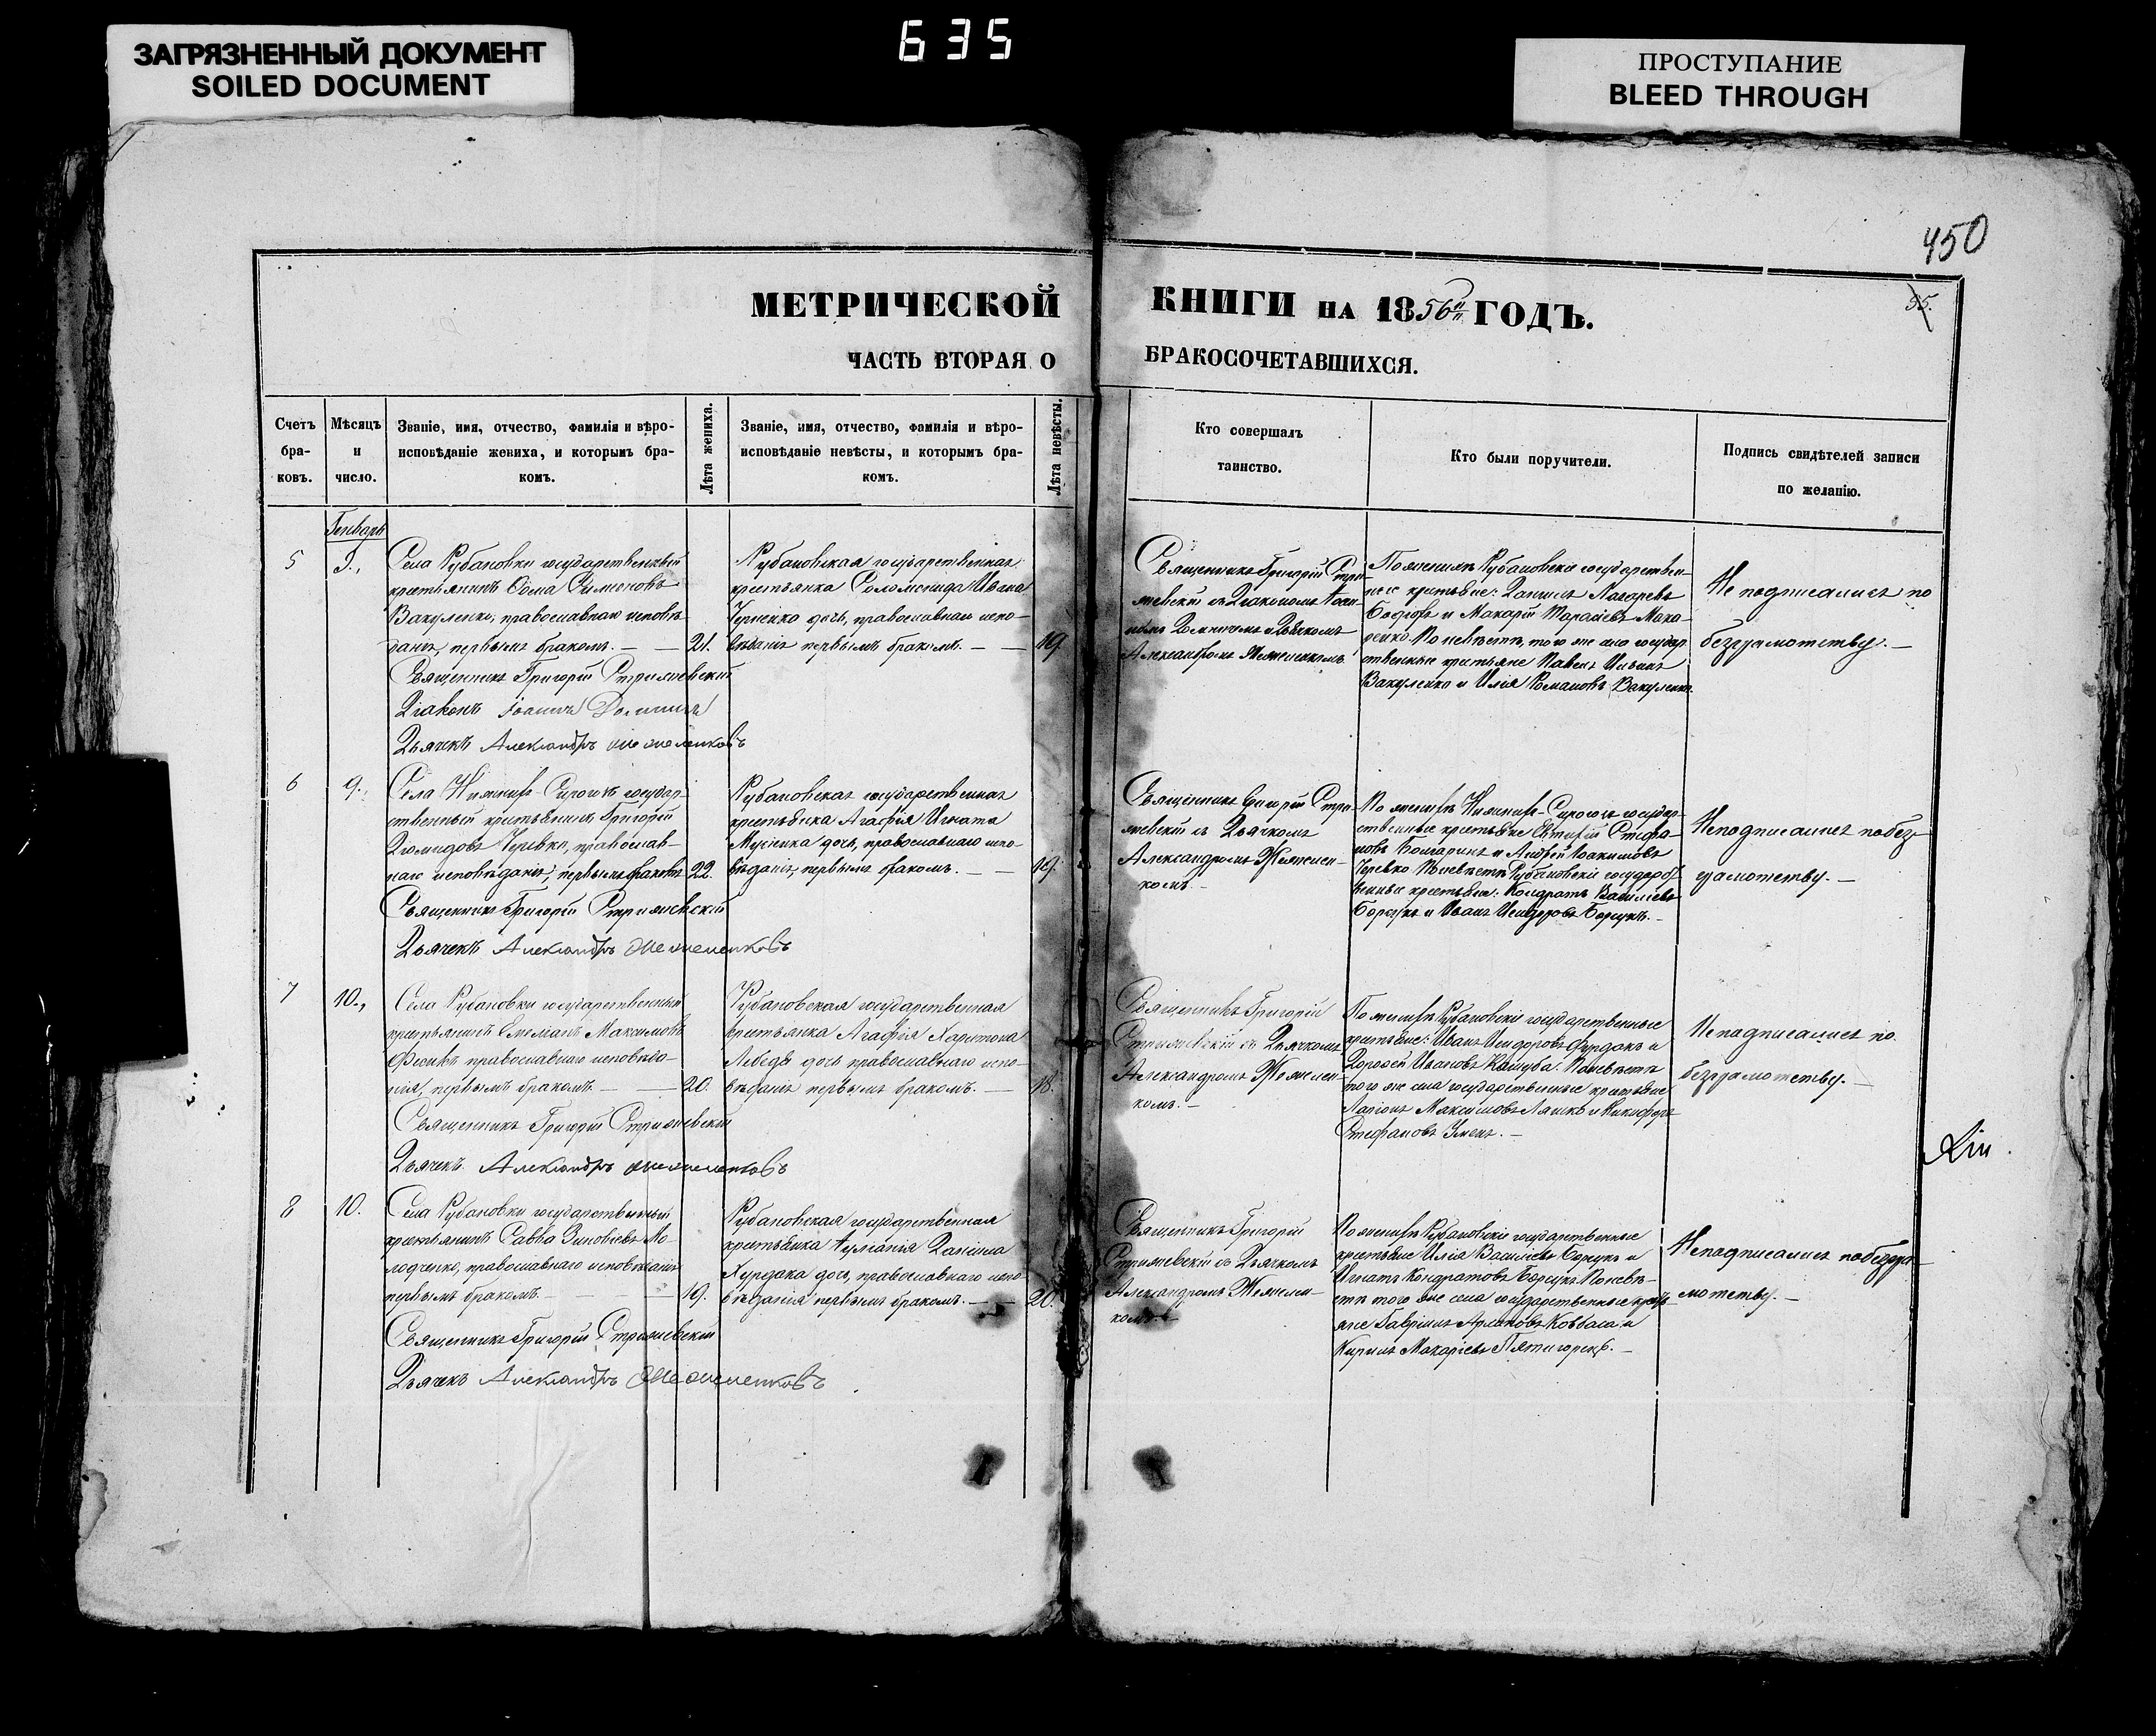 ЗАГРЯЗНЕННЫЙ ДОКУМЕНТ
SOILED DOCUMENT
635
ПРОСТУПАНИЕ
BLEED THROUGH
450
55.
МЕТРИЧЕСКОЙ КНИГИ НА 1856й ГОДЪ.
ЧАСТЬ ВТОРАЯ О БРАКОСОЧЕТАВШИХСЯ.
Счетъ
бра-
ковъ.
Мѣсяцъ
и
число.
Званіе, имя, отчество, фамилія и вѣро-
исповѣданіе жениха, и которымъ бра-
комъ.
Лѣта жениха.
Званіе, имя, отчество, фамилія и вѣро-
исповѣданіе невѣсты, и которымъ бра-
комъ.
Лѣта невѣсты.
Кто совершалъ
таинство.
Кто были поручители.
Подпись свидѣтелей записи
по желанію.
Генварь
5
Села Рубановки государственный
крестьянинъ Ѳома
Вакуленко, православнаго исповѣ-
данія, первымъ бракомъ. —
21.
Священникъ Григорій Стрижевскій
Діаконъ Іоаннъ
Дьячекъ Александръ
Рубановская государственная
крестьянка Соломонида Ивана
Черненко дочь, православнаго испо-
вѣданія первымъ бракомъ. —
19.
Священникъ Григорій Стри-
жевскій съ Діакономъ Іоан-
номъ и Дьячкомъ
Александромъ
По женихѣ Рубановскіе государствен-
ные крестьяне: Даніилъ Лазаревъ
и Макарій Тарасіевъ Мака-
ренко. По невѣстѣ, того же села государ
ственные крестьяне Павелъ
Вакуленко и Илія Романовъ Вакуленко.
Не подписались по
безграмотству. —
6
9.
Села Нижнихъ Сирогозъ государ-
ственный крестьянинъ Григорій
Черевко, православ-
наго исповѣданія, первымъ бракомъ
22.
Священникъ Григорій Стрижевскій
Дьячекъ Александръ
Рубановская государственная
крестьянка Агафія Игната
дочь, православнаго испо-
вѣданія, первымъ бракомъ. —
19.
Священникъ Григорій Стри-
жевскій съ Дьячкомъ
Александромъ
комъ. —
По женихѣ Нижнихъ Сирогозъ государ-
ственные крестьяне Евтихій Стефа-
новъ Болгаринъ и Андрей
Черевко. По невѣстѣ Рубановскіе государст-
венные крестьяне: Кондратъ Василіевъ
Борсукъ и Иванъ Исидоровъ Борсукъ. —
Неподписались по без-
грамотству. —
7
10.,
Села Рубановки государственный
крестьянинъ Емеліанъ Максимовъ
православнаго исповѣда-
нія, первымъ бракомъ. —
20.
Священникъ Григорій Стрижевскій
Дьячекъ Александръ
Рубановская государственная
крестьянка Агафія Харитона
Лебедя дочь православнаго испо-
вѣданія первымъ бракомъ. —
18.
Священникъ Григорій
Стрижевскій съ Дьячкомъ
Александромъ
комъ. —
По женихѣ Рубановскіе государственные
крестьяне: Иванъ Исидоровъ и
Дорофей Ивановъ Кошуба. По невѣстѣ
того же села государственные крестьяне
Максимовъ Ляшко и Никифоръ
Стефановъ
Не подписались по
безграмотству. —
8
10.
Села Рубановки государственный
крестьянинъ Савва Зиновіевъ Мо-
лодченко, православнаго исповѣданія
первымъ бракомъ. —
19.
Священникъ Григорій Стрижевскій
Дьячекъ Александръ
Рубановская государственная
крестьянка Іуліанія Даніила
дочь, православнаго испо-
вѣданія первымъ бракомъ. —
20.
Священникъ Григорій
Стрижевскій съ Дьячкомъ
Александромъ
комъ. —
По женихѣ Рубановскіе государственные
крестьяне Илія Василіевъ Борсукъ и
Игнатъ Кондратовъ Борсукъ. По невѣ-
стѣ того же села государственные кресть-
яне Гавріилъ Ковбаса и
Кирилъ Макаріевъ Пятигорецъ. —
Не подписались по безгра-
мотству. —